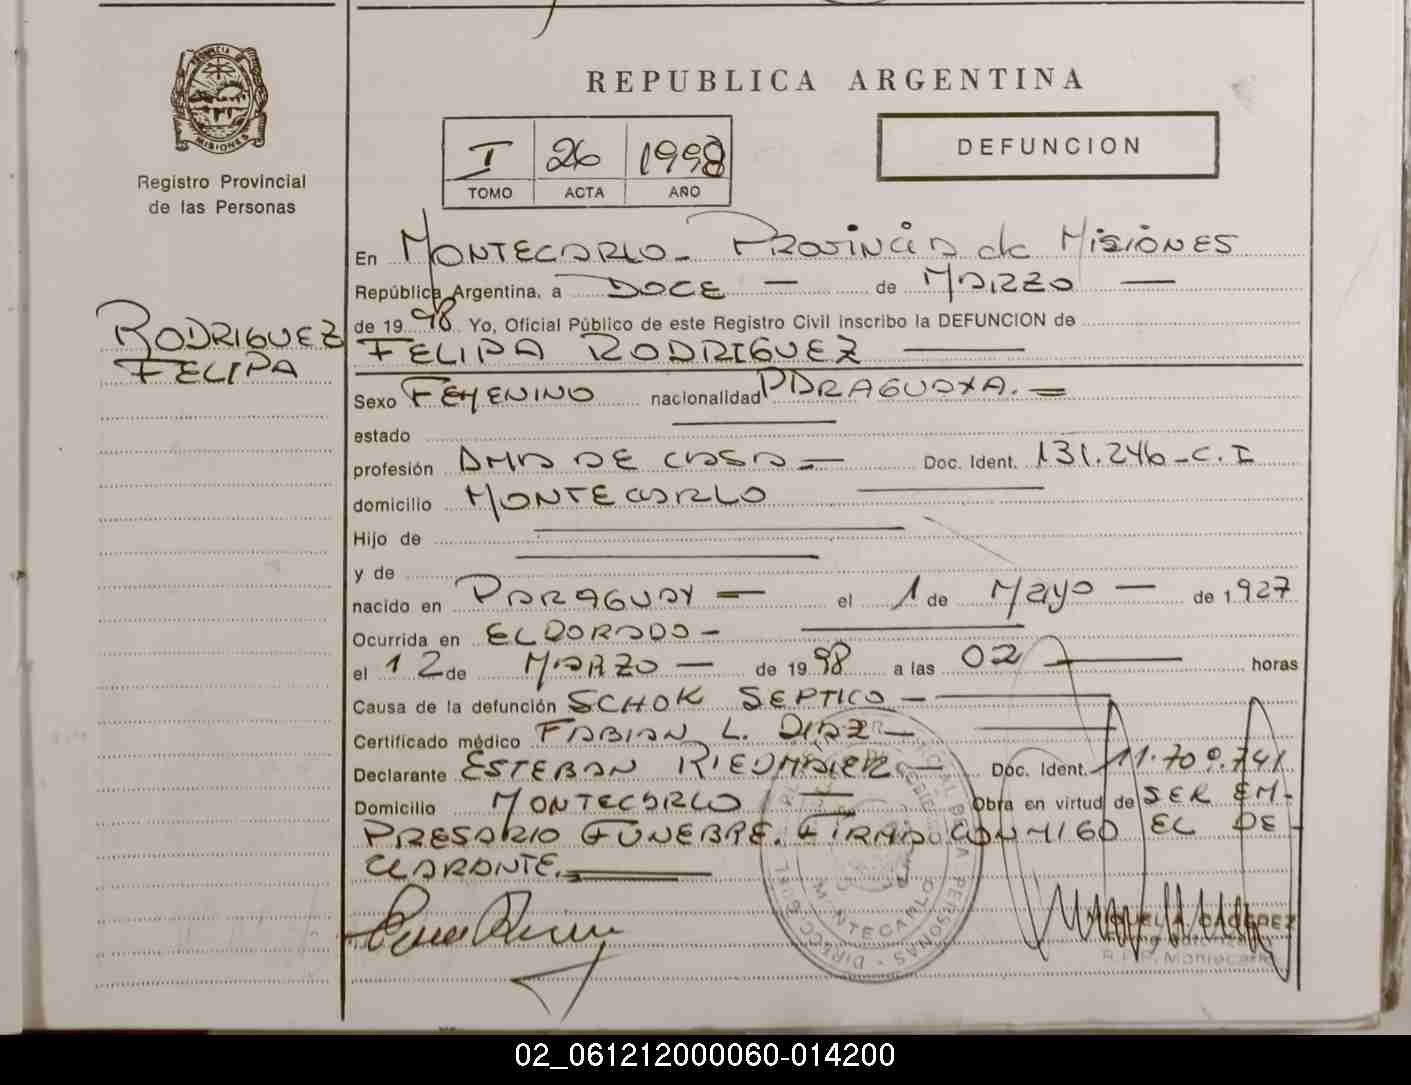 PROVINCIA DE
MISIONES
Registro Provincial
de las Personas
RODRIGUEZ
FELIPA
REPUBLICA ARGENTINA
I 26 1998
TOMO ACTA AÑO
DEFUNCION
En MONTECARLO - PROVINCIA de MISIONES
República Argentina, a DOCE — de MARZO —
de 1998 Yo, Oficial Público de este Registro Civil inscribo la DEFUNCION de
FELIPA RODRIGUEZ —
Sexo FEMENINO nacionalidad PARAGUAYA. =
estado —
profesión AMA DE CASA — Doc. Ident. 131.246-C.I
domicilio MONTECARLO —
Hijo de —
y de —
nacido en PARAGUAY — el 1 de Mayo — de 1.927
Ocurrida en ELDORADO - —
el 12 de MARZO — de 1998 a las 02 — horas
Causa de la defunción SCHOK SEPTICO —
Certificado médico FABIAN L. DIAZ —
Declarante ESTEBAN RIEDMAIER — Doc. Ident. 11.709.741
Domicilio MONTECARLO — Obra en virtud de SER EM-
PRESARIO FUNEBRE. FIRMA CONMIGO EL DE-
CLARANTE. =
PERSONAS - DIRECC
MONTECARLO
CACEREZ
R.P.P. Montecarlo
02_061212000060-014200